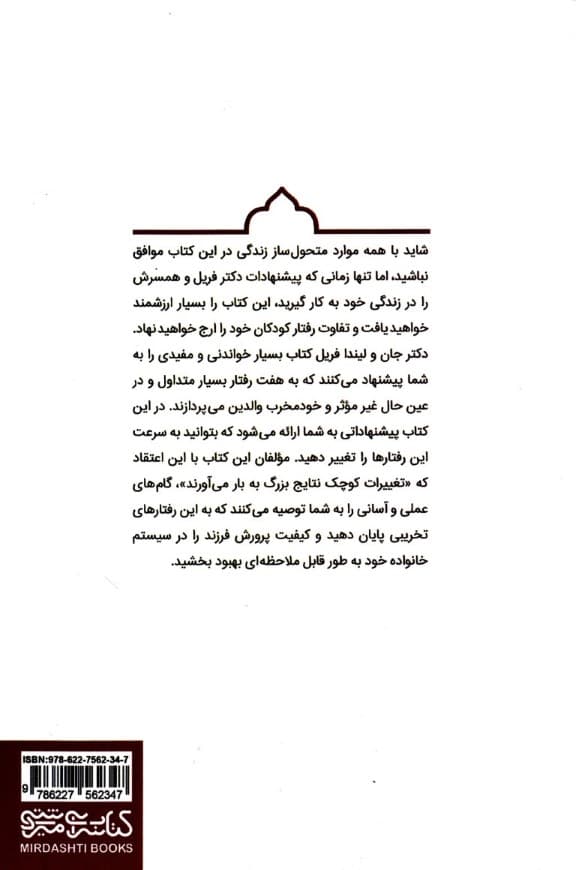 شاید با همه موارد متحول‌ساز زندگی در این کتاب موافق
نباشید، اما تنها زمانی که پیشنهادات دکتر فریل و همسرش
را در زندگی خود به کار گیرید، این کتاب را بسیار ارزشمند
خواهید یافت و تفاوت رفتار کودکان خود را ارج خواهید نهاد.
دکتر جان و لیندا فریل کتاب بسیار خواندنی و مفیدی را به
شما پیشنهاد می‌کنند که به هفت رفتار بسیار متداول و در
عین حال غیر مؤثر و خودمخرب والدین می‌پردازند. در این
کتاب پیشنهاداتی به شما ارائه می‌شود که بتوانید به سرعت
این رفتارها را تغییر دهید. مؤلفان این کتاب با این اعتقاد
که «تغییرات کوچک نتایج بزرگ به بار می‌آورند»، گام‌های
عملی و آسانی را به شما توصیه می‌کنند که به این رفتارهای
تخریبی پایان دهید و کیفیت پرورش فرزند را در سیستم
خانواده خود به طور قابل ملاحظه‌ای بهبود بخشید.
ISBN:978-622-7562-34-7
9 786227 562347
کتابسرای میردشتی
MIRDASHTI BOOKS